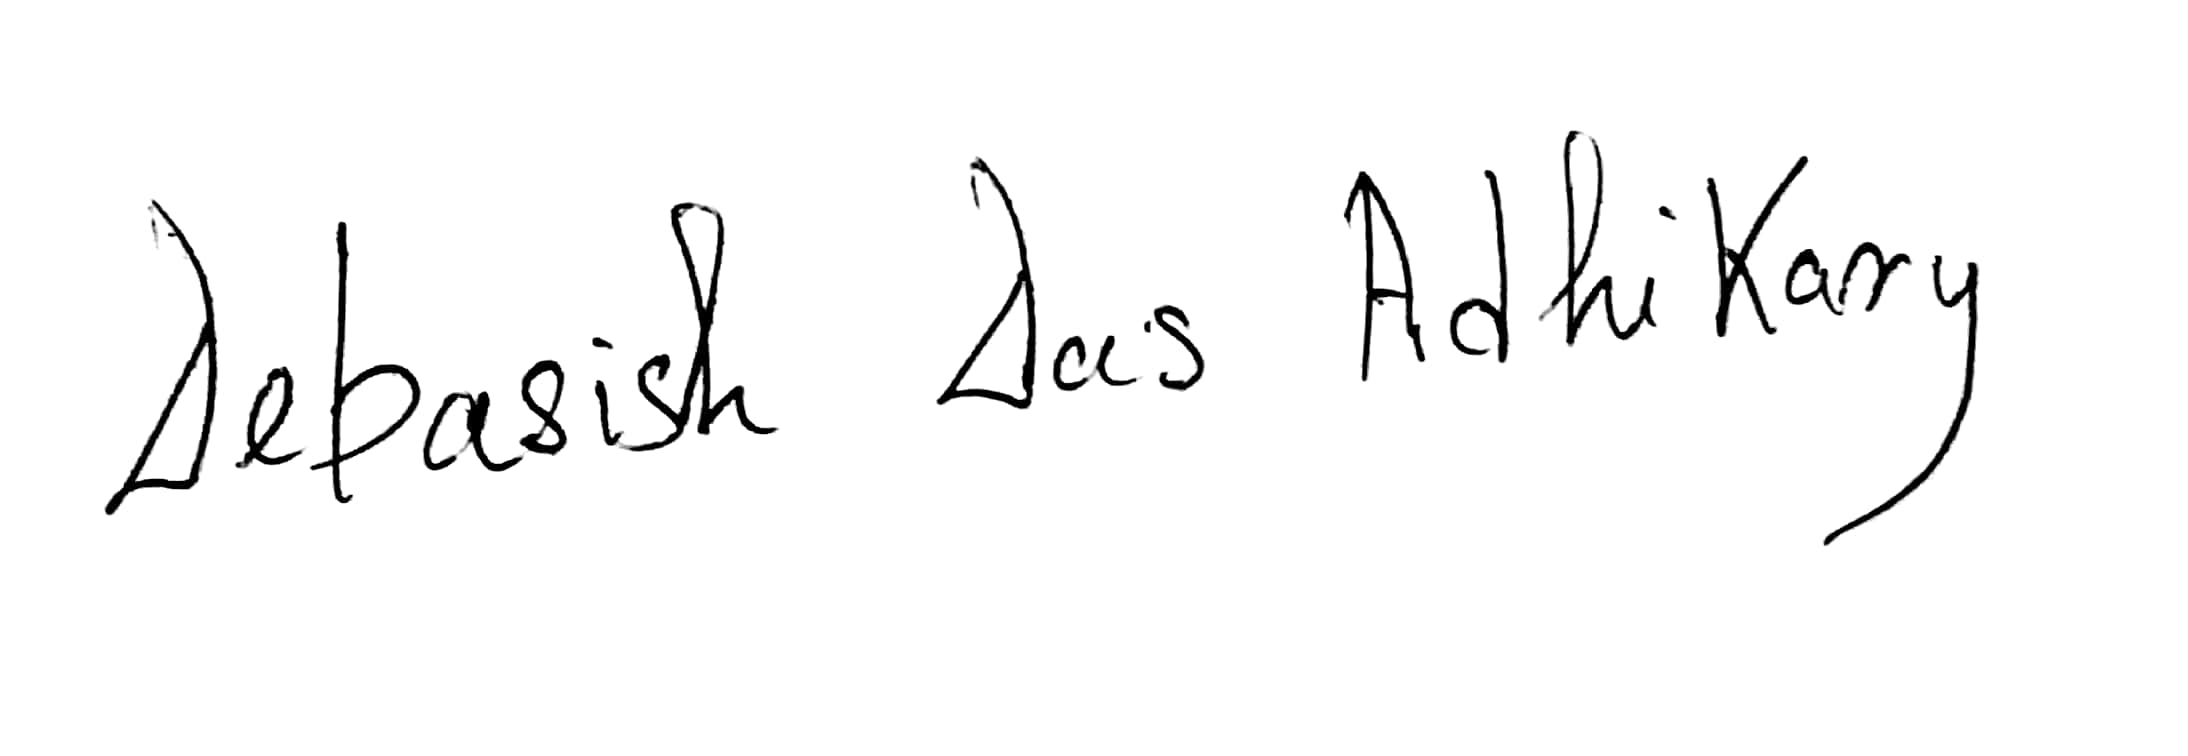 Debasish Das Adhikary